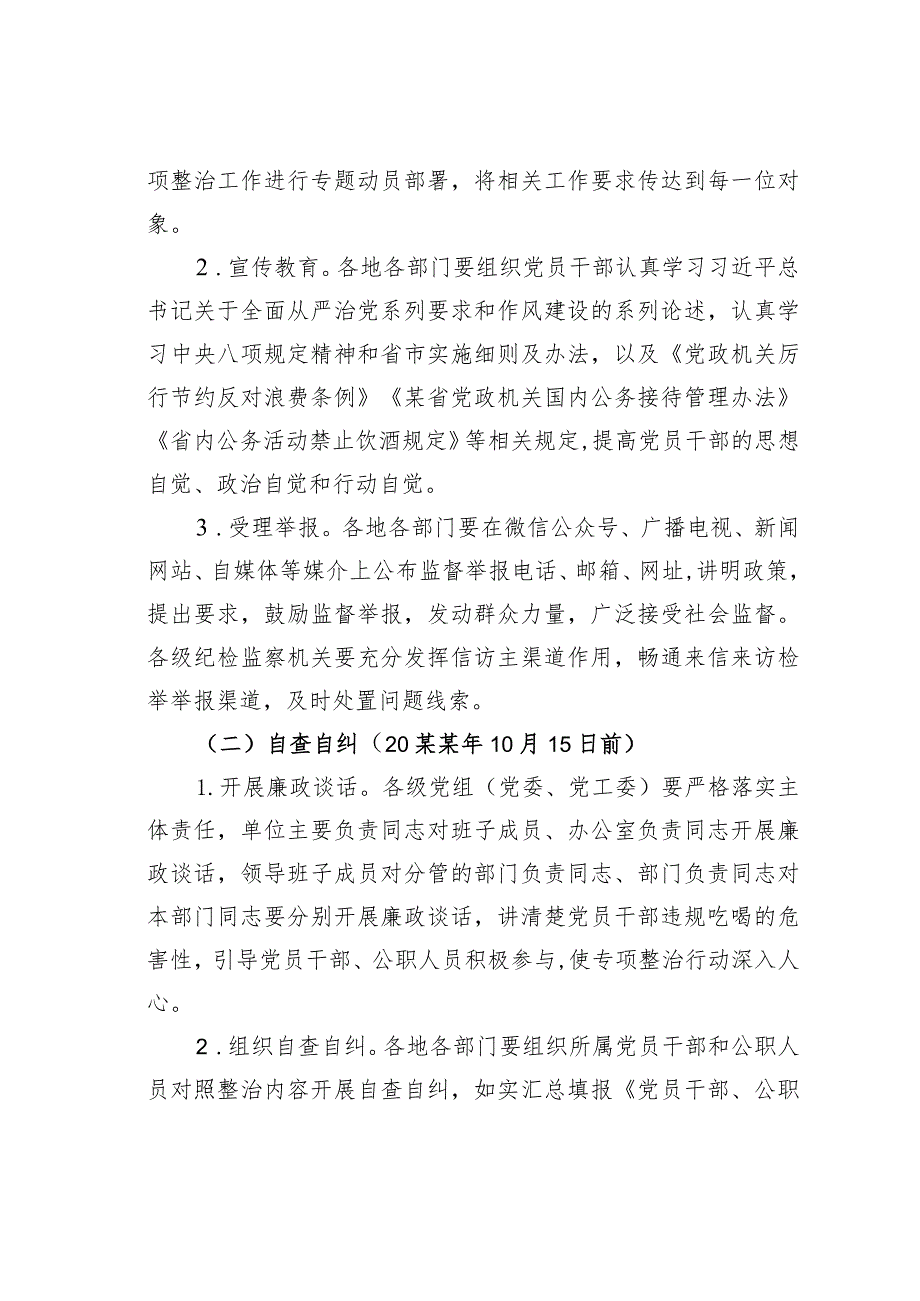 项整治工作进行专题动员部署，将相关工作要求传达到每一位对
象。
2．宣传教育。各地各部门要组织党员干部认真学习习近平总
书记关于全面从严治党系列要求和作风建设的系列论述，认真学
习中央八项规定精神和省市实施细则及办法，以及《党政机关厉
行节约反对浪费条例》《某省党政机关国内公务接待管理办法》
《省内公务活动禁止饮酒规定》等相关规定,提高党员干部的思想
自觉、政治自觉和行动自觉。
3．受理举报。各地各部门要在微信公众号、广播电视、新闻
网站、自媒体等媒介上公布监督举报电话、邮箱、网址,讲明政策，
提出要求，鼓励监督举报，发动群众力量，广泛接受社会监督。
各级纪检监察机关要充分发挥信访主渠道作用，畅通来信来访检
举举报渠道，及时处置问题线索。
（二）自查自纠（20某某年10月15日前）
1.开展廉政谈话。各级党组（党委、党工委）要严格落实主
体责任，单位主要负责同志对班子成员、办公室负责同志开展廉
政谈话，领导班子成员对分管的部门负责同志、部门负责同志对
本部门同志要分别开展廉政谈话，讲清楚党员干部违规吃喝的危
害性，引导党员干部、公职人员积极参与,使专项整治行动深入人
心。
2．组织自查自纠。各地各部门要组织所属党员干部和公职人
员对照整治内容开展自查自纠，如实汇总填报《党员干部、公职